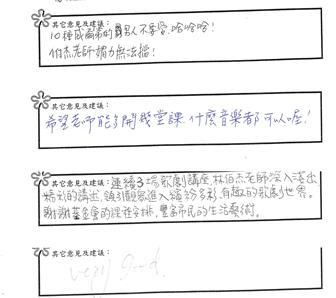 其它意見及建議：
10種威爾第的男人不要愛.哈哈哈!
伯杰老師魅力無法擋!
其它意見及建議：
希望老師能多開幾堂課.什麼音樂都可以喔!
其它意見及建議：連續3場歌劇講座,林伯杰老師深入淺出
精彩的講述,領引觀眾進入繽紛多彩.有趣的歌劇世界。
謝謝基金會的課程安排,豐富市民的生活藝術。
其它意見及建議：
very good.